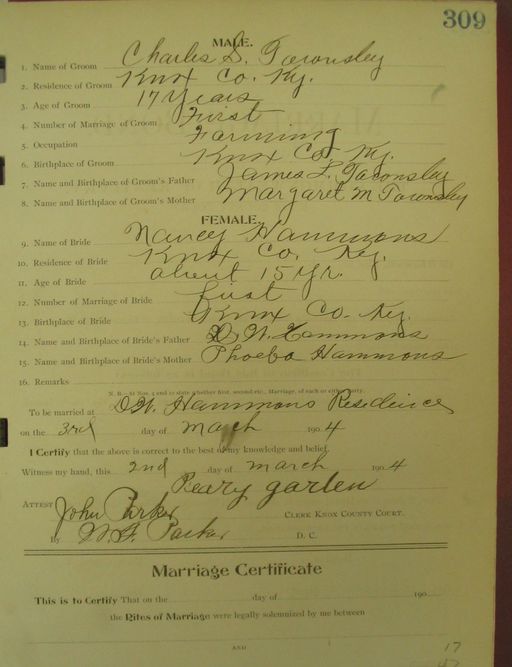 309
MALE.
1. Name of Groom Charles S. Townsley
2. Residence of Groom Knox Co. Ky.
3. Age of Groom 17 Years
4. Number of Marriage of Groom First
5. Occupation Farming
6. Birthplace of Groom Knox Co. Ky.
7. Name and Birthplace of Groom's Father James L. Townsley
8. Name and Birthplace of Groom's Mother Margaret M Townsley
FEMALE.
9. Name of Bride Nancy Hammons
10. Residence of Bride Knox Co. Key.
11. Age of Bride about 15 Yr.
12. Number of Marriage of Bride first
13. Birthplace of Bride Knox Co. Key.
14. Name and Birthplace of Bride's Father D. W. Hammons
15. Name and Birthplace of Bride's Mother Phoeba Hammons
16. Remarks
N. B.—At Nos. 4 and 12 state whether first, second etc., Marriage, of each or either party.
To be married at D.W. Hammons Residence
on the 3rd day of March 1904
I Certify that the above is correct to the best of my knowledge and belief.
Witness my hand, this 2nd day of march 1904
garlen
ATTEST John Parker CLERK KNOX COUNTY COURT.
By W. F. Parker D. C.
Marriage Certificate
This is to Certify That on the day of 190
the Rites of Marriage were legally solemnized by me between
AND
17